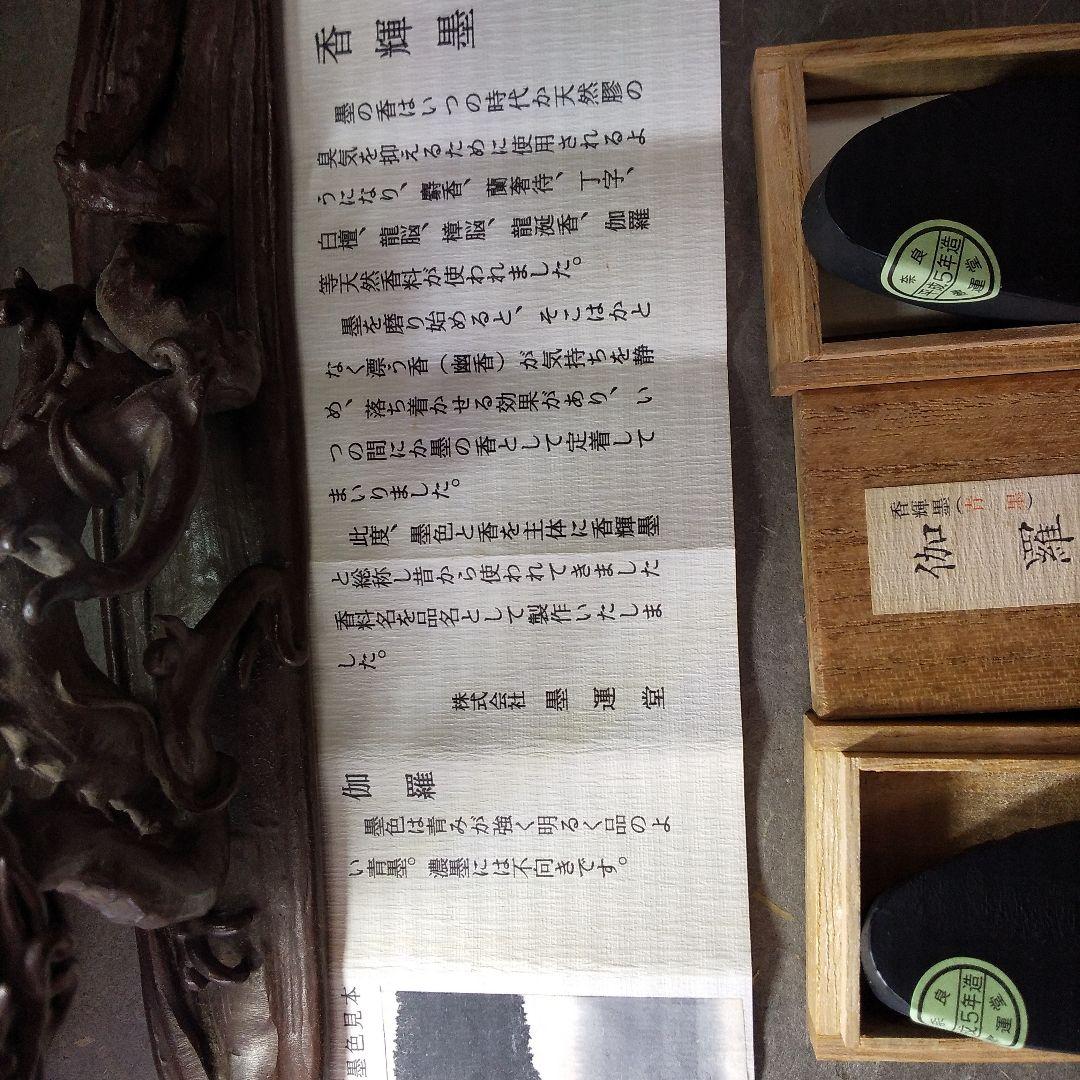 香輝墨
墨の香はいつの時代か天然膠の
臭気を抑えるために使用されるよ
うになり、麝香、蘭奢待、丁字、
白檀、龍脳、樟脳、龍涎香、伽羅
等天然香料が使われました。
墨を磨り始めると、そこはかと
なく漂う香（幽香）が気持ちを静
め、落ち着かせる効果があり、い
つの間にか墨の香として定着して
まいりました。
此度、墨色と香を主体に香輝墨
と総称し昔から使われてきました
香料名を品名として製作いたしま
した。
株式会社 墨運堂
伽羅
墨色は青みが強く明るく品のよ
い青墨。濃墨には不向きです。
墨色見本
奈良
平成5年造
墨運堂
香輝墨（青墨）
伽羅
奈良
成5年造
運堂